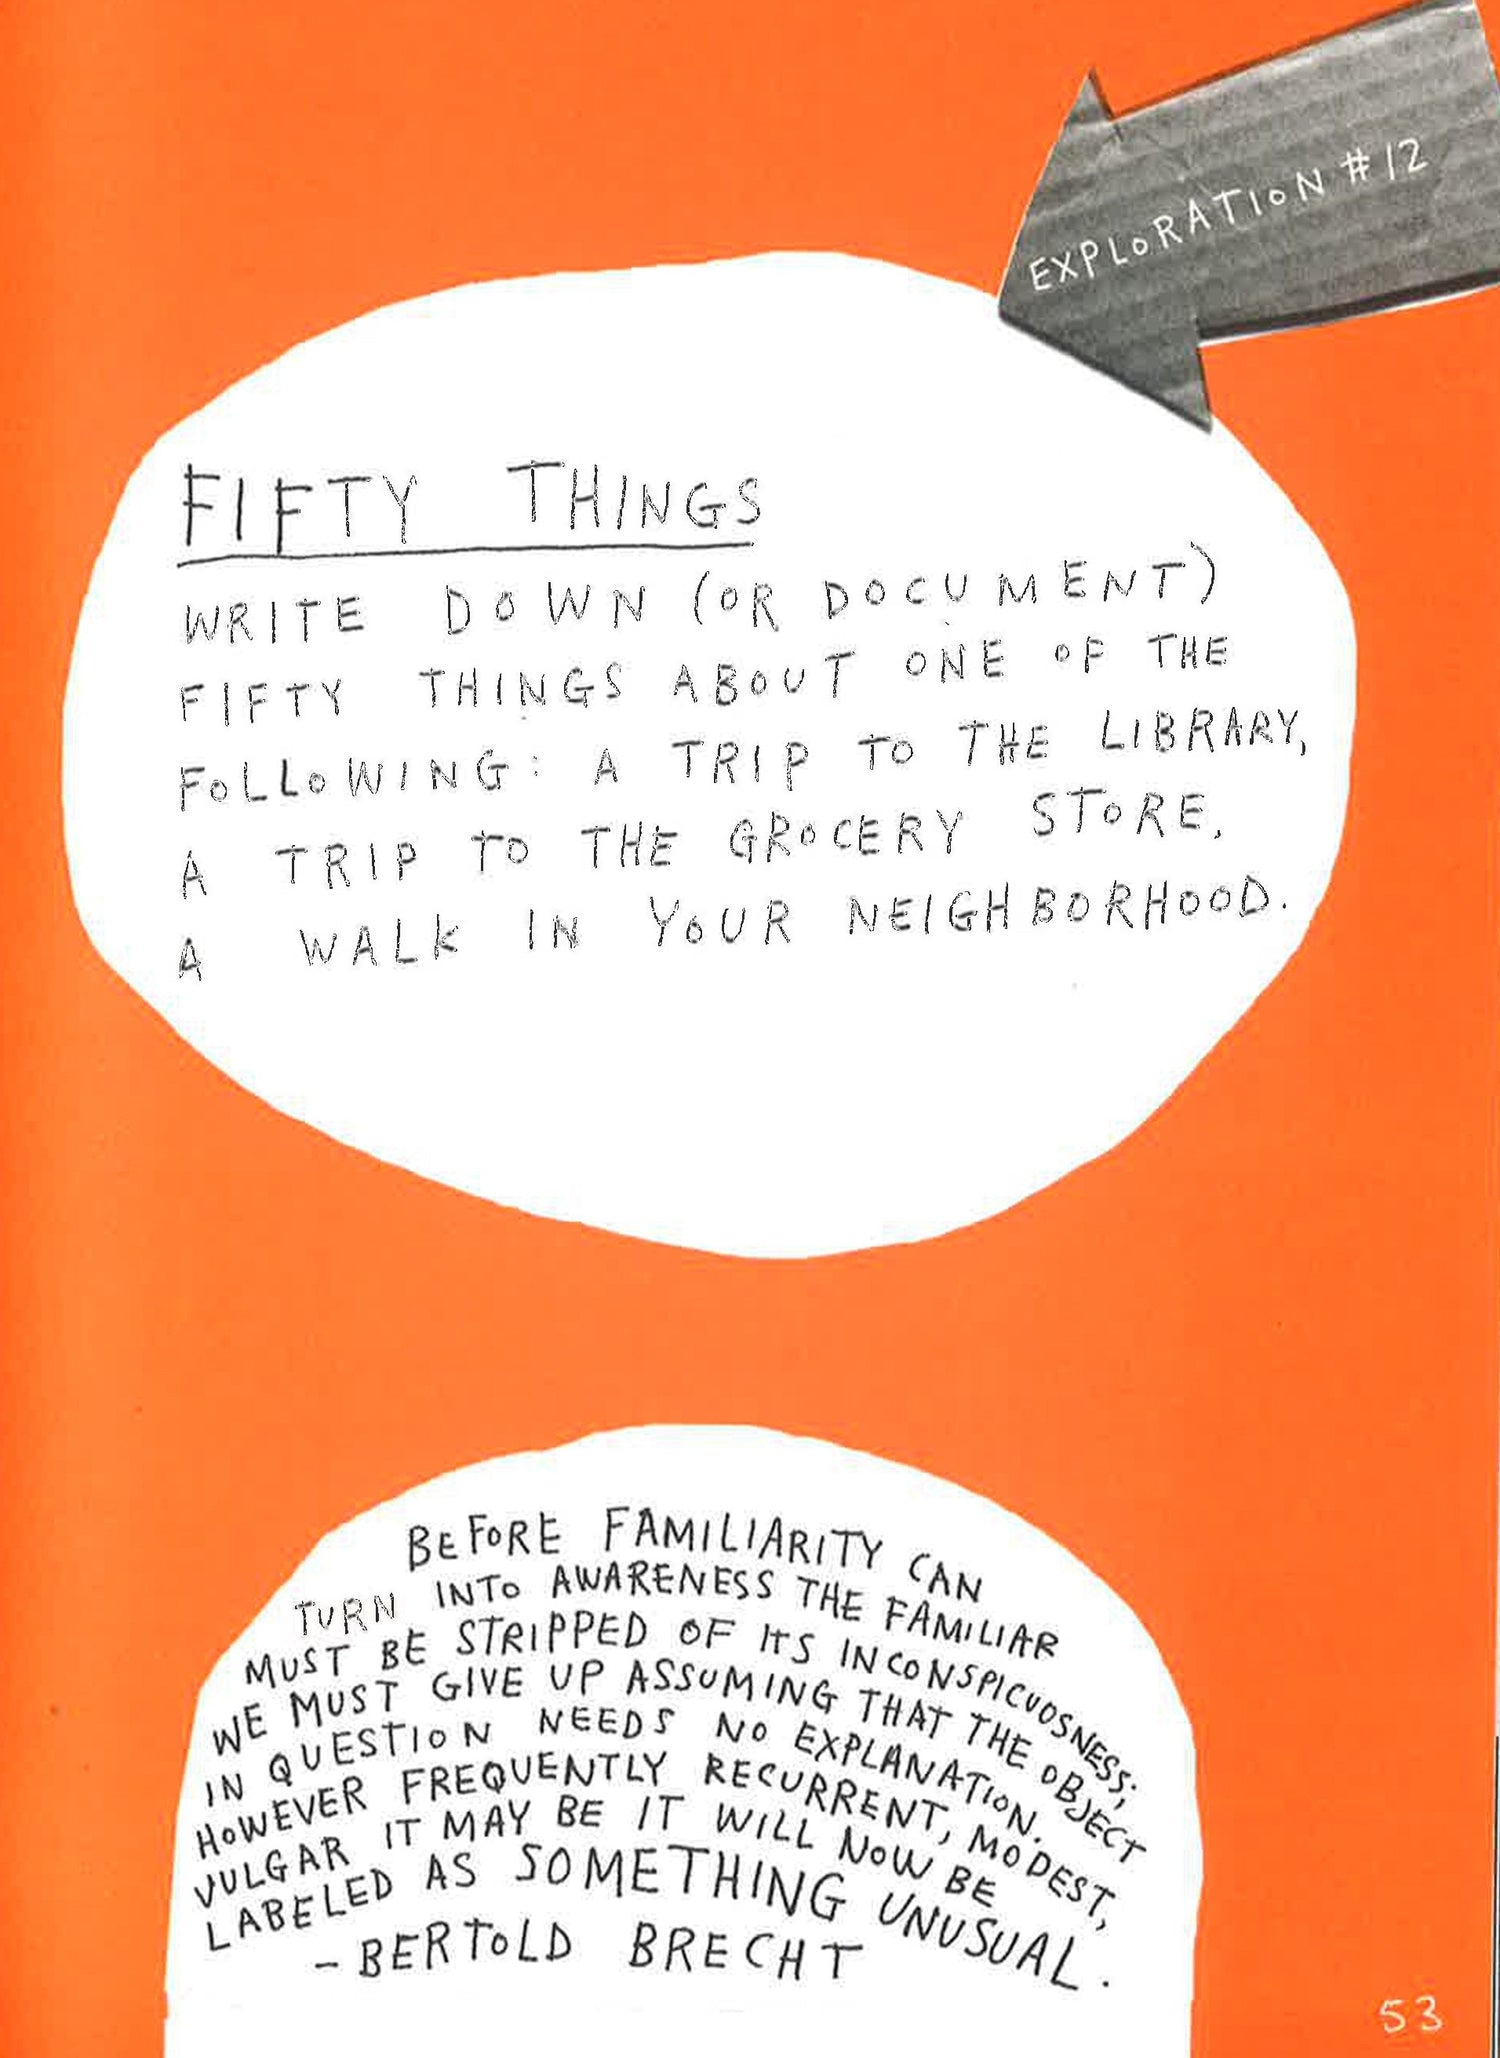 EXPLORATION #12
FIFTY THINGS
WRITE DOWN (OR DOCUMENT)
FIFTY THINGS ABOUT ONE OF THE
FOLLOWING: A TRIP TO THE LIBRARY,
A TRIP TO THE GROCERY STORE,
A WALK IN YOUR NEIGHBORHOOD.
BEFORE FAMILIARITY CAN
TURN INTO AWARENESS THE FAMILIAR
MUST BE STRIPPED OF ITS INCONSPICUOSNESS;
WE MUST GIVE UP ASSUMING THAT THE OBJECT
IN QUESTION NEEDS NO EXPLANATION.
HOWEVER FREQUENTLY RECURRENT, MODEST,
VULGAR IT MAY BE IT WILL NOW BE
LABELED AS SOMETHING UNUSUAL.
-BERTOLD BRECHT
53